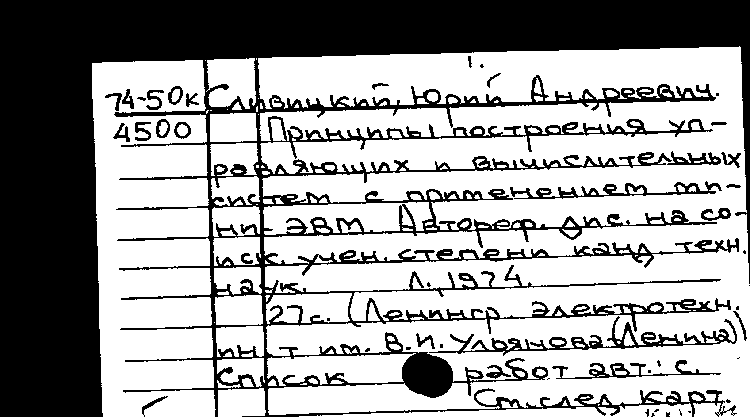 1.
74-50к Сливицкий, Юрий Андреевич.
4500 Принципы построения уп-
равляющих и вычислительных
систем с применением ми-
ни-ЭВМ. Автореф. дис. на со-
иск. учен. степени канд. техн.
наук. Л., 1974.
27с. (Ленингр. электротехн.
ин-т им. В.И. Ульянова (Ленина))
Список работ авт.: с.
Ст. след. карт.